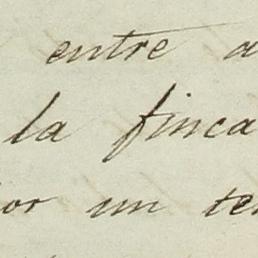 entre a
la finca
or un te